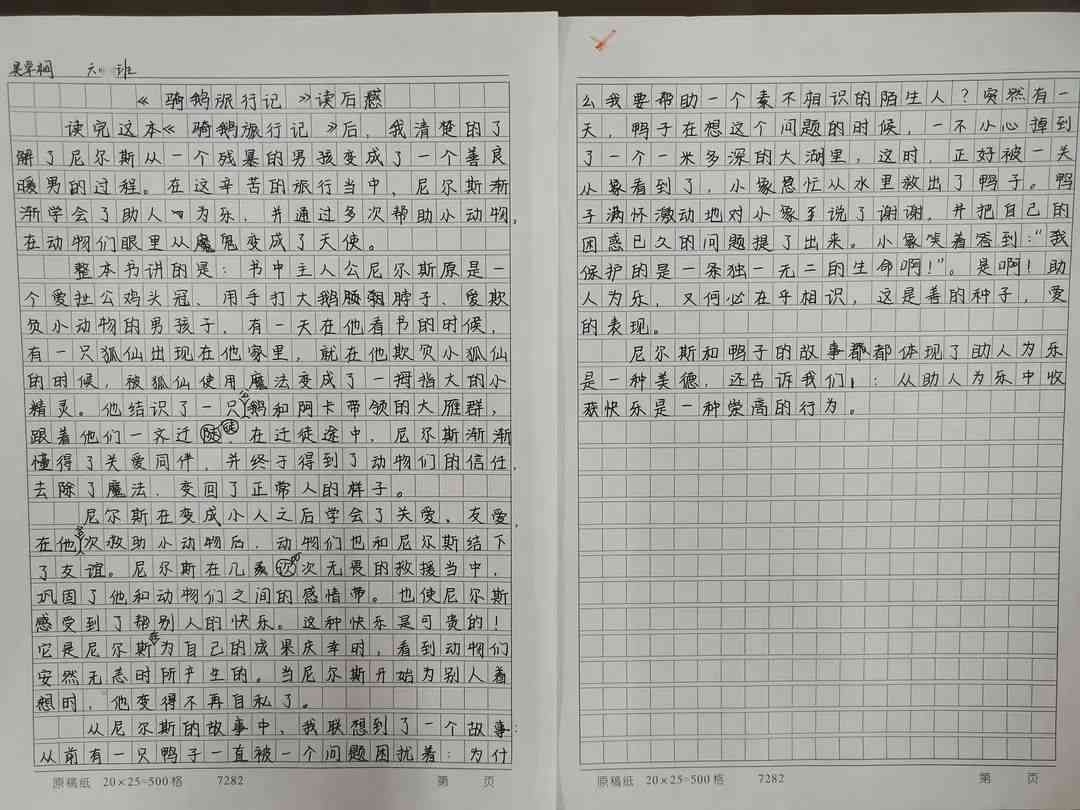 六 班
《骑鹅旅行记》读后感
读完这本《骑鹅旅行记》后,我清楚的了
解了尼尔斯从一个残暴的男孩变成了一个善良
暖男的过程。在这辛苦的旅行当中,尼尔斯渐
渐学会了助人为乐,并通过多次帮助小动物,
在动物们眼里从魔鬼变成了天使。
整本书讲的是:书中主人公尼尔斯原是一
个爱扯公鸡头冠、用手打大鹅脖子、爱欺
负小动物的男孩子,有一天在他看书的时候,
有一只狐仙出现在他家里,就在他欺负小狐仙
的时候,被狐仙使用魔法变成了一拇指大的小
精灵。他结识了一只鹅和阿卡带领的大雁群,
跟着他们一齐迁徒,在迁徒途中,尼尔斯渐渐
懂得了关爱同伴,并终于得到了动物们的信任,
去除了魔法,变回了正常人的样子。
尼尔斯在变成小人之后学会了关爱、友爱,
在他多次救助小动物后,动物们也和尼尔斯结下
了友谊。尼尔斯在几次无畏的救援当中,
巩固了他和动物们之间的感情带。也使尼尔斯
感受到了帮别人的快乐。这种快乐是可贵的!
它是尼尔斯在为自己的成果庆幸时,看到动物们
安然无恙时所产生的。当尼尔斯开始为别人着
想时,他变得不再自私了。
从尼尔斯的故事中,我联想到了一个故事:
从前有一只鸭子一直被一个问题困扰着:为什
原稿纸 20×25=500格 7282 第 页
么我要帮助一个素不相识的陌生人?突然有一
天,鸭子在想这个问题的时候,一不小心掉到
了一个一米多深的大湖里,这时,正好被一头
小象看到了,小象急忙从水里救出了鸭子。鸭
子满怀激动地对小象说了谢谢,并把自己的
困惑已久的问题提了出来。小象笑着答到:“我
保护的是一条独一无二的生命啊!”。是啊!助
人为乐,又何必在乎相识,这是善的种子,爱
的表现。
尼尔斯和鸭子的故事都体现了助人为乐
是一种美德,还告诉我们:从助人为乐中收
获快乐是一种崇高的行为。
原稿纸 20×25=500格 7282 第 页